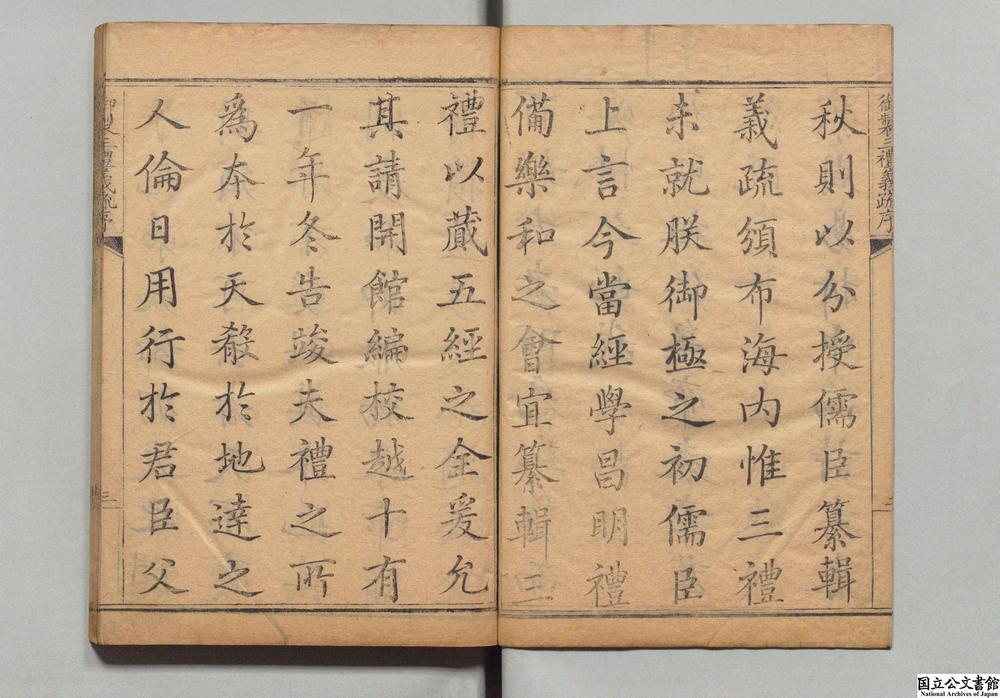 御製三禮義疏序
二
秋則以分授儒臣纂輯
義疏頒布海内惟三禮
未就朕御極之初儒臣
上言今當經學昌明禮
備樂和之會宜纂輯三
禮以蕆五經之全爰允
其請開館編校越十有
一年冬告竣夫禮之所
為本於天殽於地達之
人倫日用行於君臣父
御製三禮義疏序
三
国立公文書館
National Archives of Japan